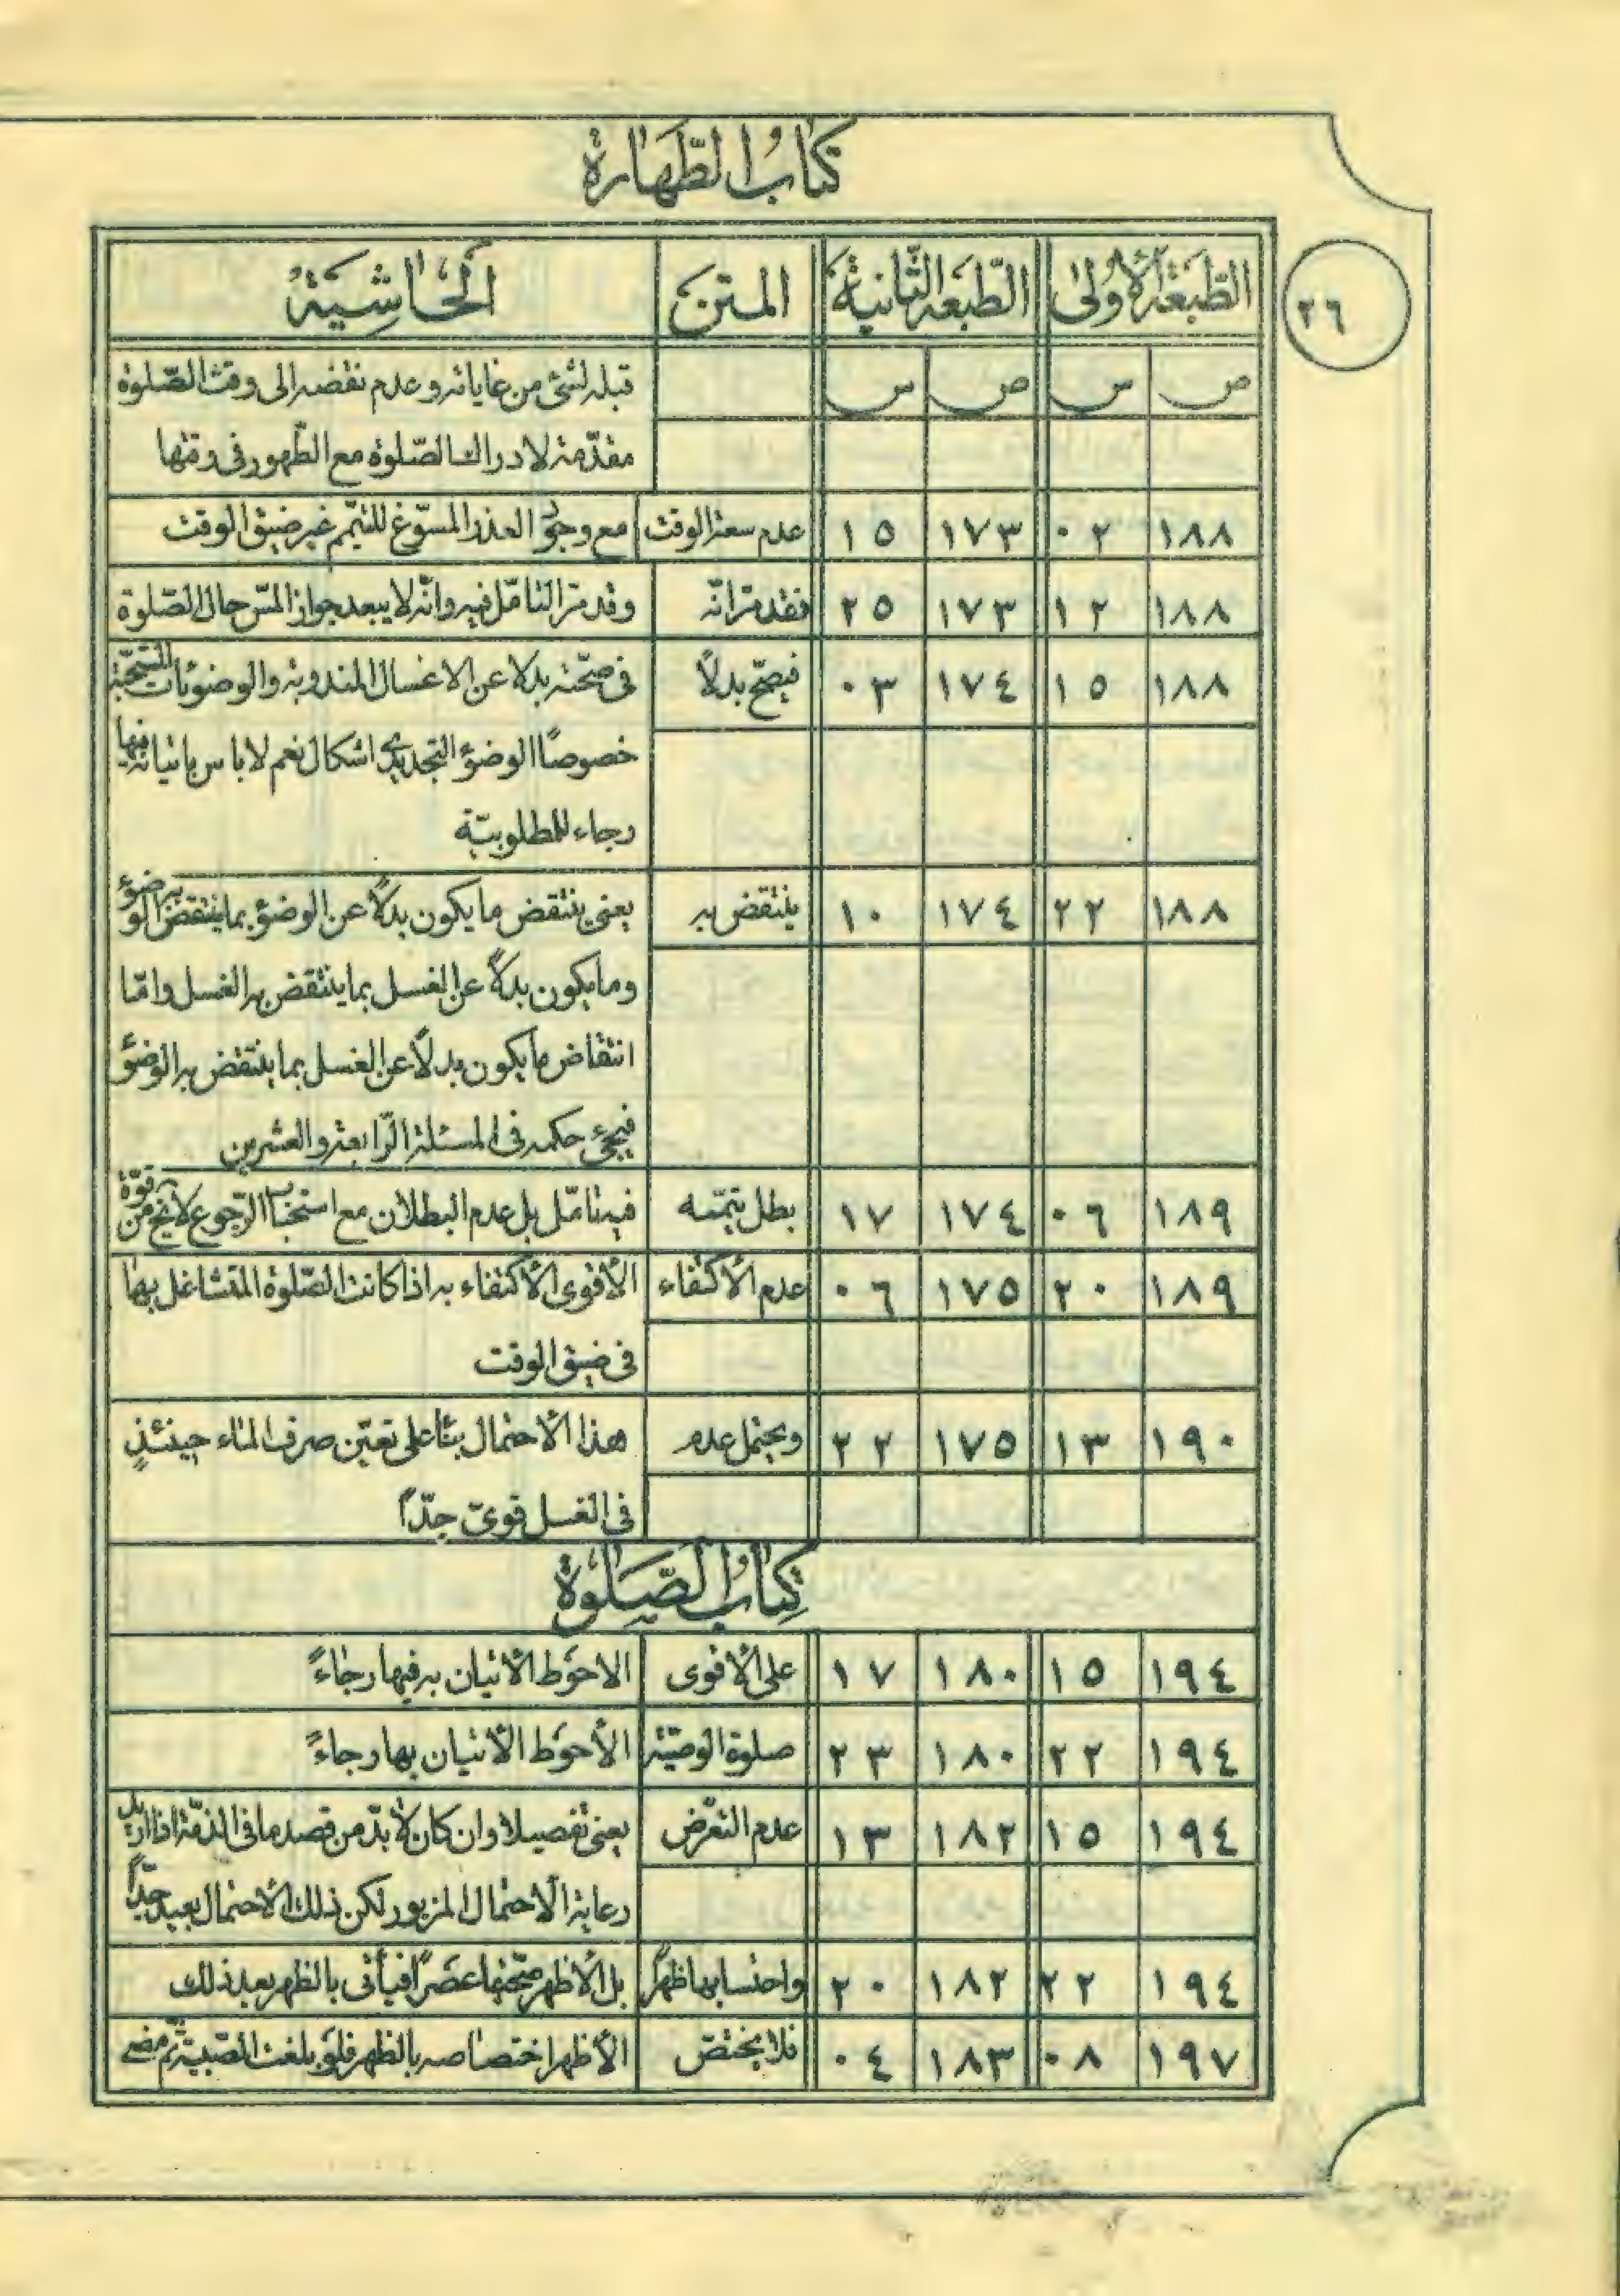 كتاب الطّهارة
٢٦
الطّبعة الأولىٰ الطّبعة الثّانية المتن الحاشية
ص س ص س قبله لشئ من غاياته وعدم نقضه الى وقت الصّلوة
مقدّمة لادراك الصّلوة مع الطّهور فى وقتها
١٨٨ ٠٢ ١٧٣ ١٥ عدم سعة الوقت مع وجود العذر المسوّغ للتيمّم غير ضيق الوقت
١٨٨ ١٢ ١٧٣ ٢٥ فقد مرّ انّه وقد مرّ التامّل فيه وانّه لا يبعد جواز المسّ حال الصّلوة
١٨٨ ١٥ ١٧٤ ٠٣ فيصحّ بدلاً فى صحّته بدلا عن الاغسال المندوبة والوضوئات المستحبّة
خصوصًا الوضوُ التجديدى اشكال نعم لا باس باتيانه فيها
رجاء للمطلوبيّة
١٨٨ ٢٢ ١٧٤ ١٠ ينتقض به يعنى ينتقض ما يكون بدلاً عن الوضوُ بما ينتقض به الوضوُ
وما يكون بدلاً عن الغسل بما ينتقض به الغسل وامّا
انتقاض ما يكون بدلاً عن الغسل بما ينتقض به الوضوُ
فيجئ حكمه فى المسئلة الرّابعة والعشرين
١٨٩ ٠٦ ١٧٤ ١٧ بطل تيمّمه فيه تامّل بل عدم البطلان مع استحباب الرّجوع لا يخ من قوّة
١٨٩ ٢٠ ١٧٥ ٠٦ عدم الأكتفاء الأقوى الأكتفاء به اذا كانت الصّلوة المتشاغل بها
فى ضيق الوقت
١٩٠ ١٣ ١٧٥ ٢٢ ويحتمل عدم هذا الأحتمال بناءً على تعيّن صرف الماء حينئذٍ
فى الغسل قوىّ جدّاً
كتاب الصّلوة
١٩٤ ١٥ ١٨٠ ١٧ على الأقوى الاحوَط الأتيان به فيها رجاءً
١٩٤ ٢٢ ١٨٠ ٢٣ صلوة الوصيّة الأحوَط الأتيان بها رجاءً
١٩٤ ١٥ ١٨٢ ١٣ عدم التعرّض يعنى تفصيلا وان كان لأبدّ من قصد ما فى الذمّة اذا اريد
رعاية الأحتمال المزبور لكن ذلك الأحتمال بعيد جدّاً
١٩٤ ٢٢ ١٨٢ ٢٠ واحتسابها ظهراً بل الأظهر صحّتها عصراً فيأتى بالظهر بعد ذلك
١٩٧ ٠٨ ١٨٣ ٠٤ فلا يختصّ الأظهر اختصاصه بالظهر فلو بلغت الصّبية ثمّ مضى